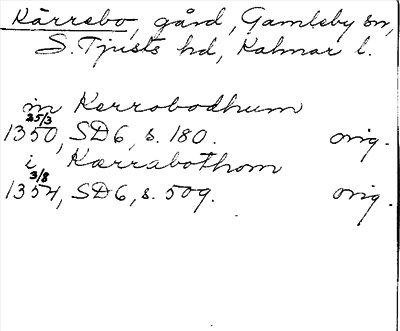 Kärrebo, gård, Gamleby sn,
S. Tjusts hd, Kalmar l.
in Kerrobodhum
25/3
1350, SD6, s. 180. orig.
i Kærrabothom
3/8
1354, SD6, s. 509. orig.